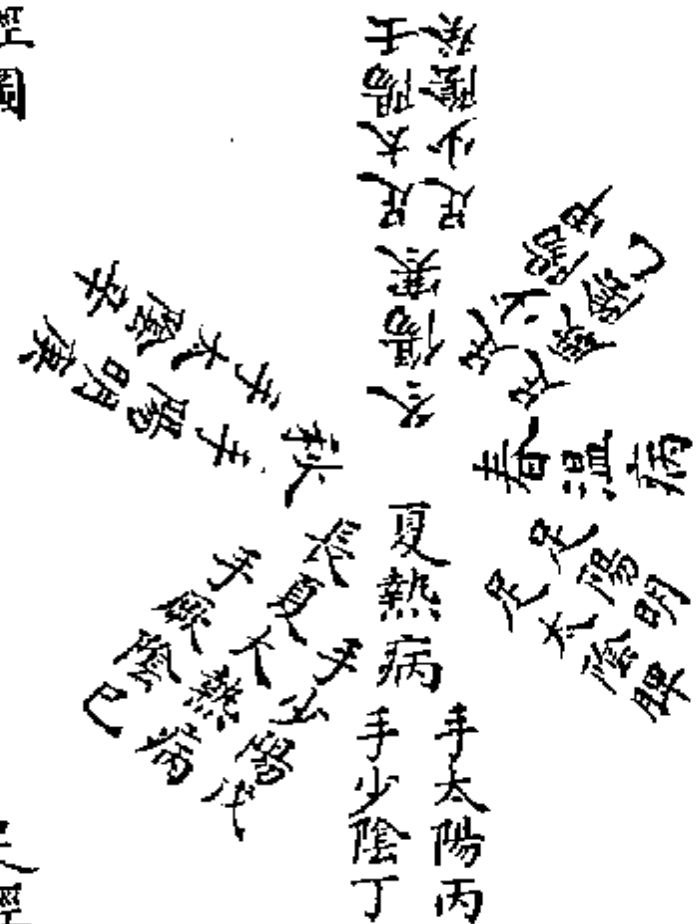 冬傷寒
足太陽壬
足少陰癸
足少陽甲
足厥陰乙
春溫病
足陽明
足太陰脾
夏熱病
手太陽丙
手少陰丁
長夏大熱病
手少陽戊
手厥陰己
秋
手陽明庚
手太陰辛